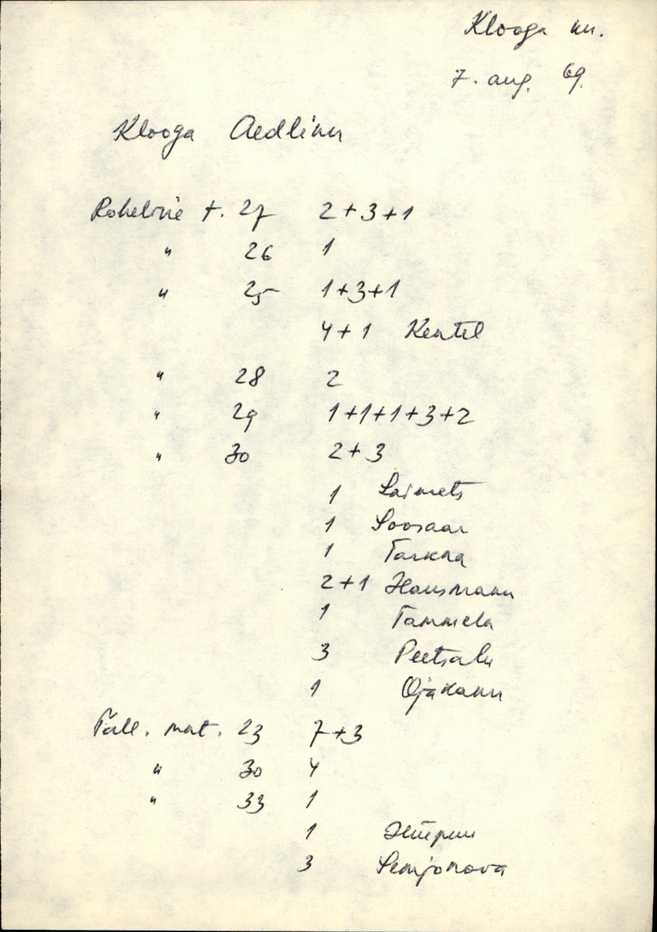 Klooga kn.
7. aug. 69.
Klooga Aedlinn
Roheline t. 27 2+3+1
" 26 1
" 25 1+3+1
4+1 Kentel
" 28 2
" 29 1+1+1+3+2
" 30 2+3
1 Laimets
1 Soosaar
1 Tarkna
2+1 Hansmann
1 Tammela
3 Peetsalu
1 Ojakann
Tall. mnt. 23 7+3
" 30 4
" 33 1
1
3 Semjonova